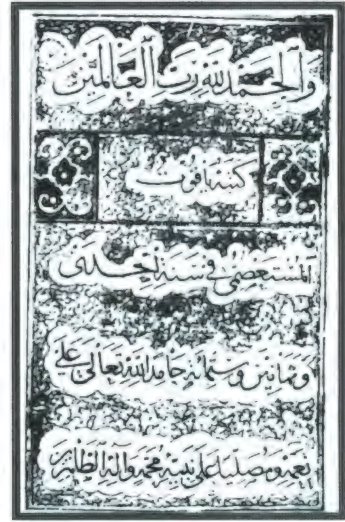 وَالحَمْدُ لله رَبِّ العَالمَيْنَ
كتبه ياقوت
المستعصمي في سَنَةِ اِحْدَى
وَثمانين وستمائه حامدًا الله تعالى على
نعمه ومصليا على نبيه محمد وآله الطاهر